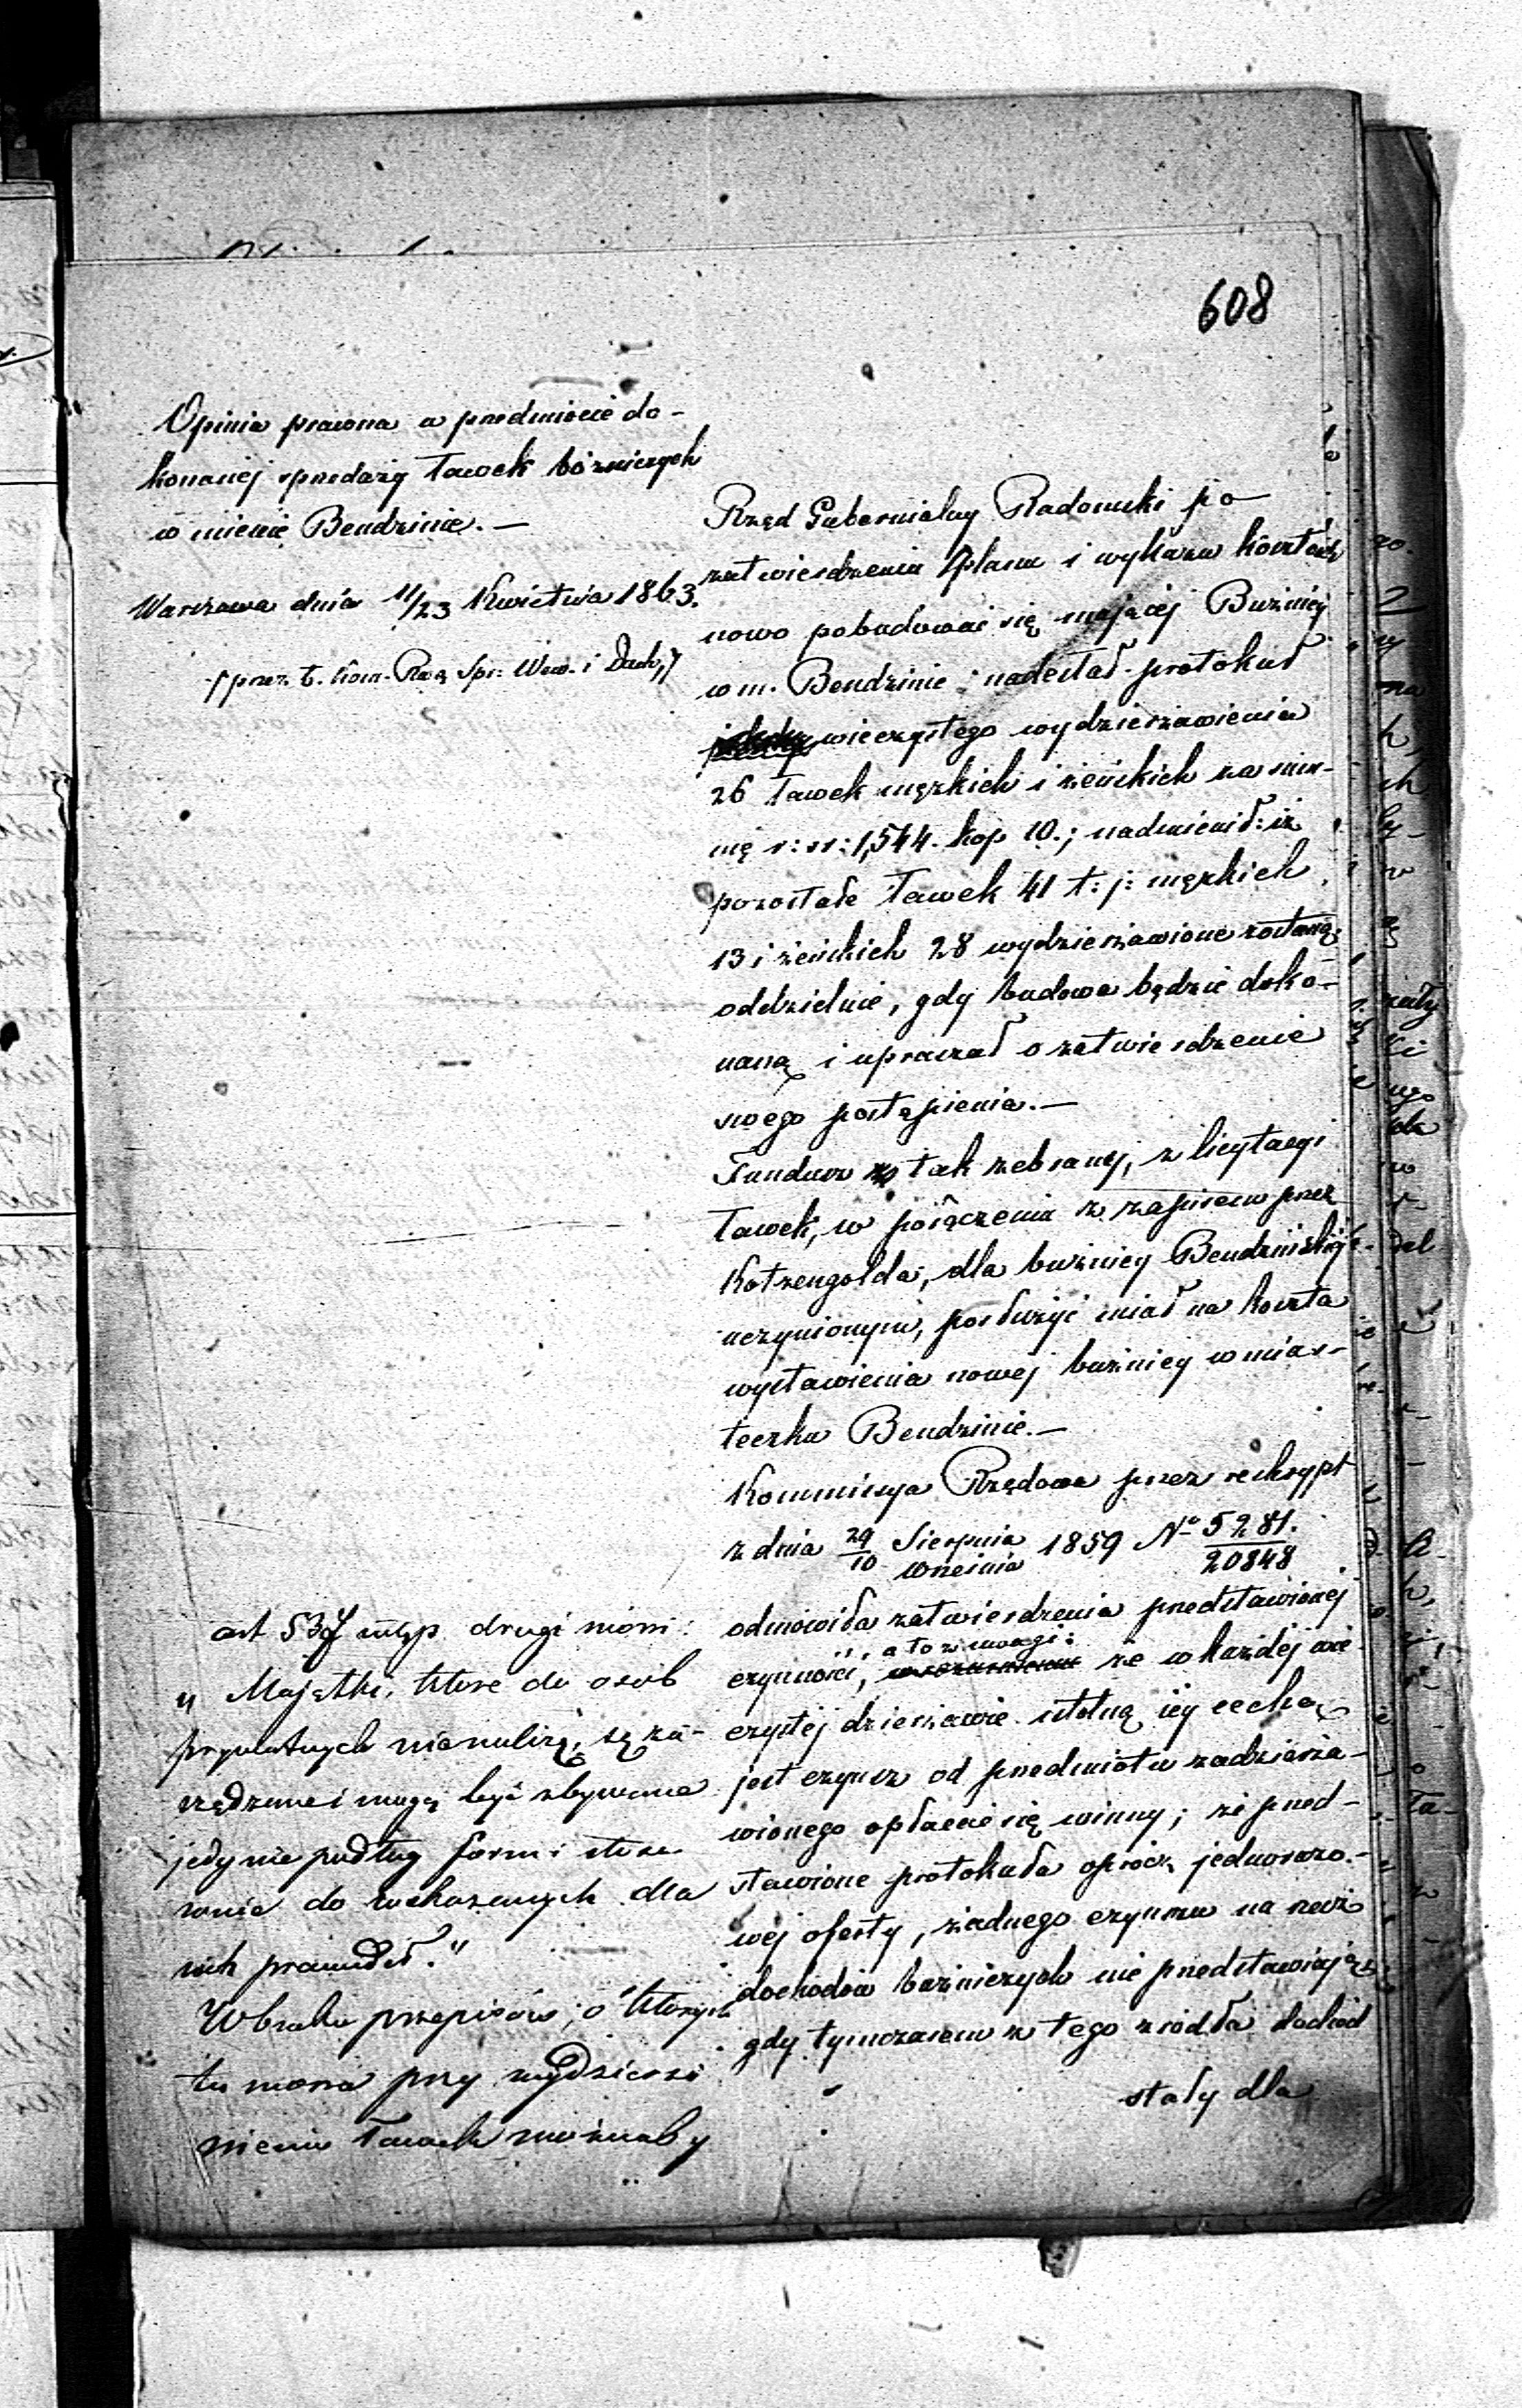 608
Opinia prawna w przedmiocie do-
konanej sprzedaży ławek bóżniczych
w mieście Bendzinie. —
Warszawa dnia 11/23 Kwietnia 1863.
/ przez b. Kom. Rzą Spr: Wew. i Duch. /
Rząd Gubernialny Radomski po
zatwierdzeniu planu i wykazu kosztów
nowo pobudować się mającej Buźnicy
w m. Bendzinie; nadesłał protokuł
wieczystego wydzierżawienia
26 ławek męzkich i żeńskich za sum-
mę r: sr: 1,544. kop 10.; nadmienił: iż
pozostałe ławek 41 t: j: męzkich
13 i żeńskich 28 wydzierżawione zostaną
oddzielnie, gdy budowa będzie doko-
naną i upraszał o zatwierdzenie
swego postąpienia. —
Fundusz tak zebrany, z licytacyi
ławek, w połączeniu z zapisem przez
Kotzengolda, dla buźnicy Bendzińskiej
uczynionym, posłużyć miał na koszta
wystawienia nowej buźnicy w mias-
teczku Bendzinie. —
Kommissya Rządowa przez reskrypt
z dnia 29/10 Sierpnia/Września 1859 No 5281./20848
odmówiła zatwierdzenia przedstawionej
czynności, a to z uwagi: że w każdej wie-
czystej dzierżawie istotną jéj cechą
jest czynsz od przedmiotu zadzierża-
wionego opłacać się winny; że przed-
stawione protokuła oprócz jednorazo-
wéj oferty, żadnego czynszu na rzecz
dochodów buźniczych nie przedstawiają
gdy tymczasem z tego źródła dochód
stały dla
art 537 ustęp drugi mówi:
„Majątki, które do osób
prywatnych nie należą, są za-
rządzane i mogą być zbywane
jedynie podług form i stoso-
wnie do wskazanych dla
nich prawideł."
W braku przepisów, o których
tu mowa przy wydzierża
wieniu ławek możnaby